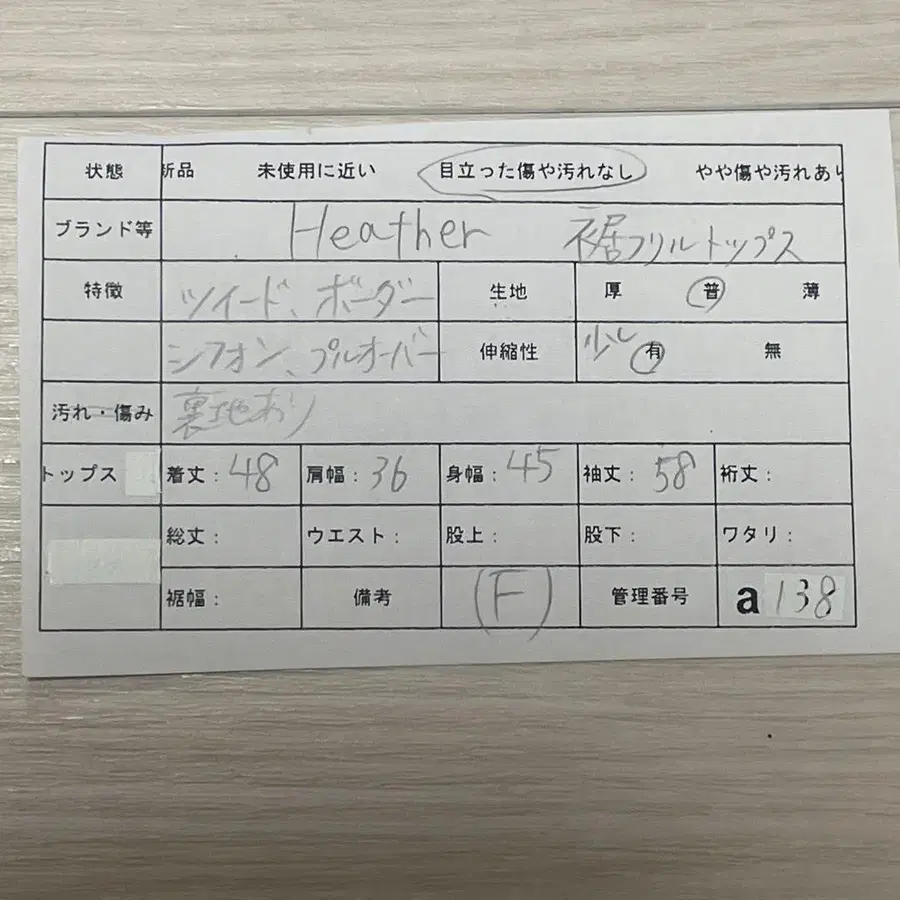 状態 新品 未使用に近い 目立った傷や汚れなし やや傷や汚れあり
ブランド等 Heather 裾フリルトップス
特徴 ツイード、ボーダー 生地 厚 普 薄
シフォン、プルオーバー 伸縮性 少し 有 無
汚れ・傷み 裏地あり
トップス 着丈:48 肩幅:36 身幅:45 袖丈:58 裄丈:
総丈: ウエスト: 股上: 股下: ワタリ:
裾幅: 備考 (F) 管理番号 a 138